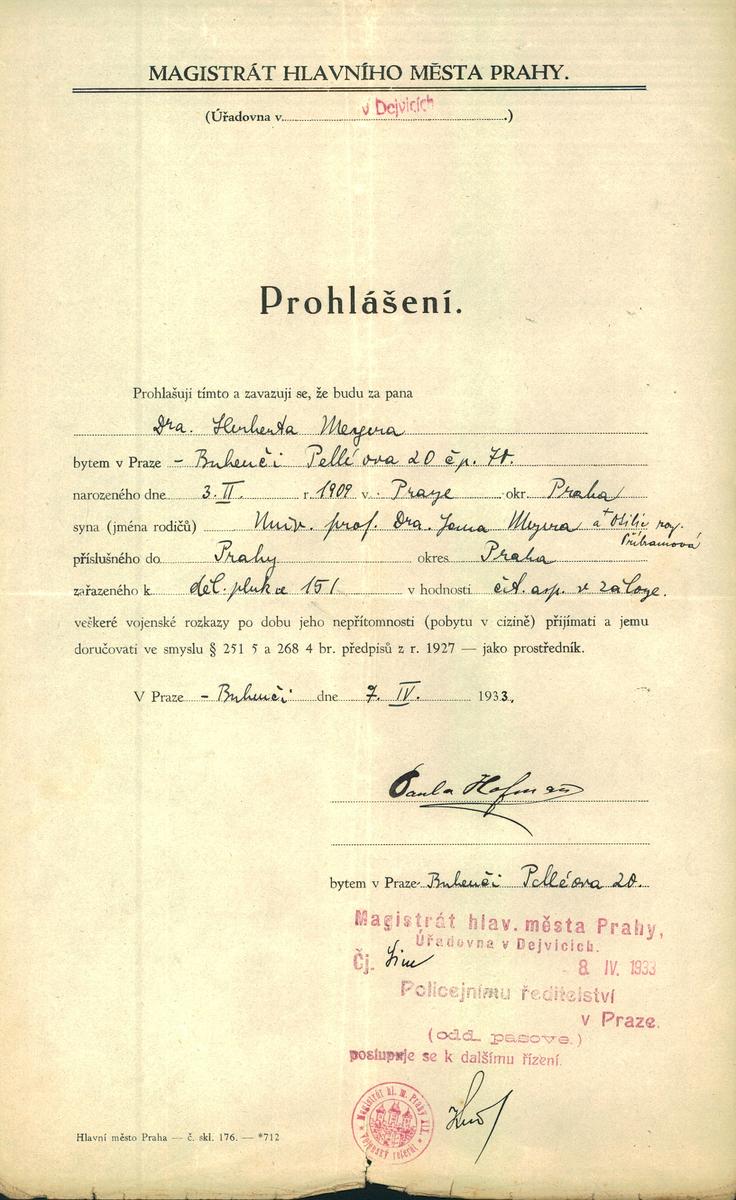 MAGISTRÁT HLAVNÍHO MĚSTA PRAHY.
(Úřadovna v v Dejvicích)
Prohlášení.
Prohlašuji tímto a zavazuji se, že budu za pana
Dra. Herberta Meyera
bytem v Praze - Bubenči Pelléova 20 čp. 70.
narozeného dne 3. II. r. 1909 v Praze okr. Praha
syna (jména rodičů) Univ. prof. Dra. Meyera a Otilie roz. Příbramová
příslušného do Prahy okres Praha
zařazeného k děl. pluku 151 v hodnosti čet. asp. v záloze.
veškeré vojenské rozkazy po dobu jeho nepřítomnosti (pobytu v cizině) přijímati a jemu
doručovati ve smyslu § 251 5 a 268 4 br. předpisů z r. 1927 — jako prostředník.
V Praze - Bubenči dne 7. IV. 1933.
Paula Hofman
bytem v Praze- Bubenči Pelléova 20.
Magistrát hlav. města Prahy,
Úřadovna v Dejvicích.
Čj. 8. IV. 1933
Policejnímu ředitelství
v Praze.
(odd. pasové.)
postupuje se k dalšímu řízení.
Magistrát hl. m. Prahy XIX
Vojenský referát
Hlavní město Praha — č. skl. 176. — *712